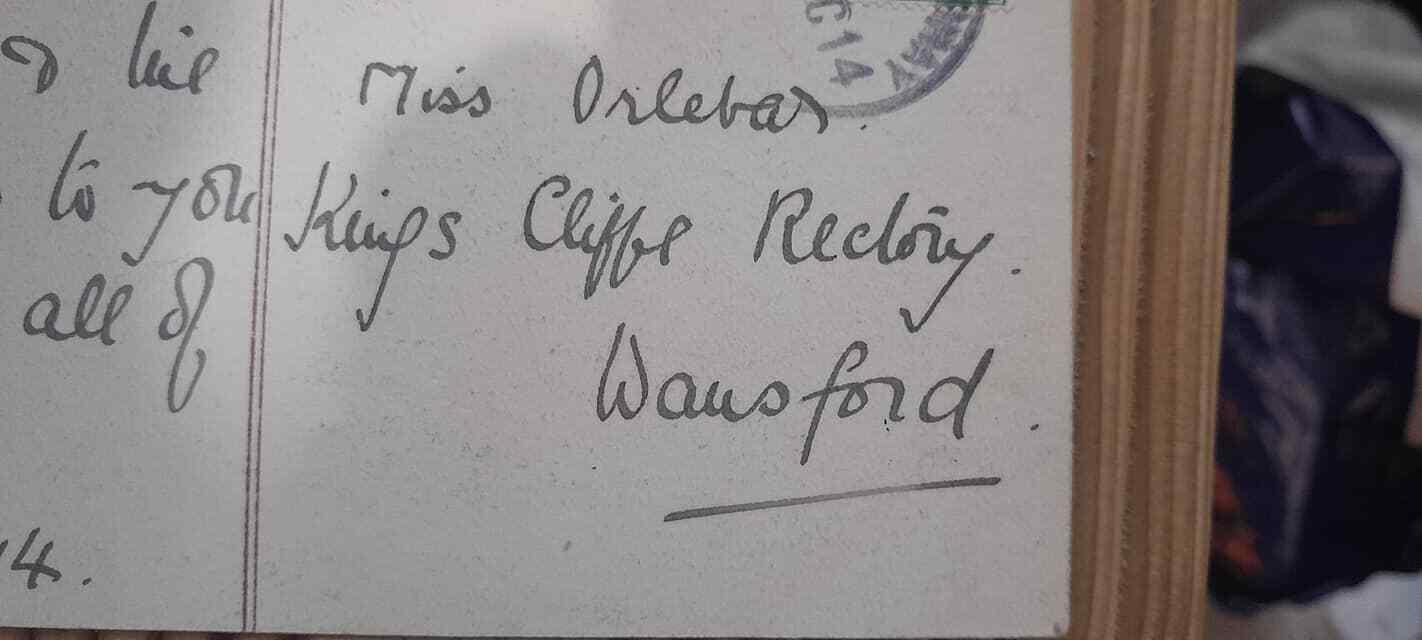 to you
all of
14.
Miss Orlebar.
Kings Cliffe Rectory.
Wansford.
C 14